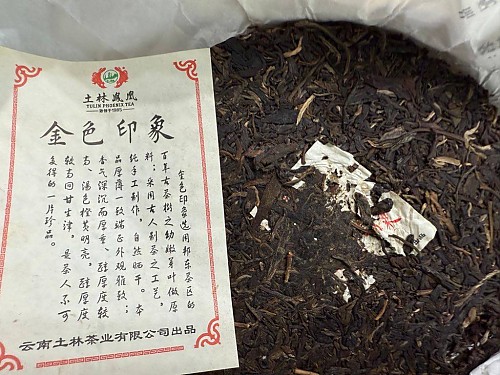 土林鳳凰
TULIN PHOENIX TEA
金色印象
金色印象選用邦东茶區的
百年古茶樹之幼嫩芽葉做原
料；采用古人制茶之工艺，
纯手工制作，自然晒干。本
品厚薄一致端正外观雅致；
香气深沉而厚重，醇厚度較
高、湯色橙黄明亮。醇厚度
較高回甘生津，是茶人不可
多得的一片珍品。
云南土林茶业有限公司出品